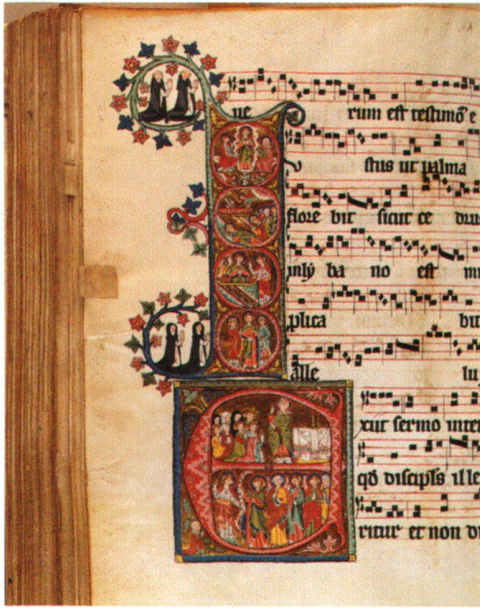 ne rum est testimo᷃ e
stus ut palma
flore bit sicut ce dru
in ly ba no est m
plica bit
alle lu
xiit sermo inter
qd discipls ille
ritur et non di